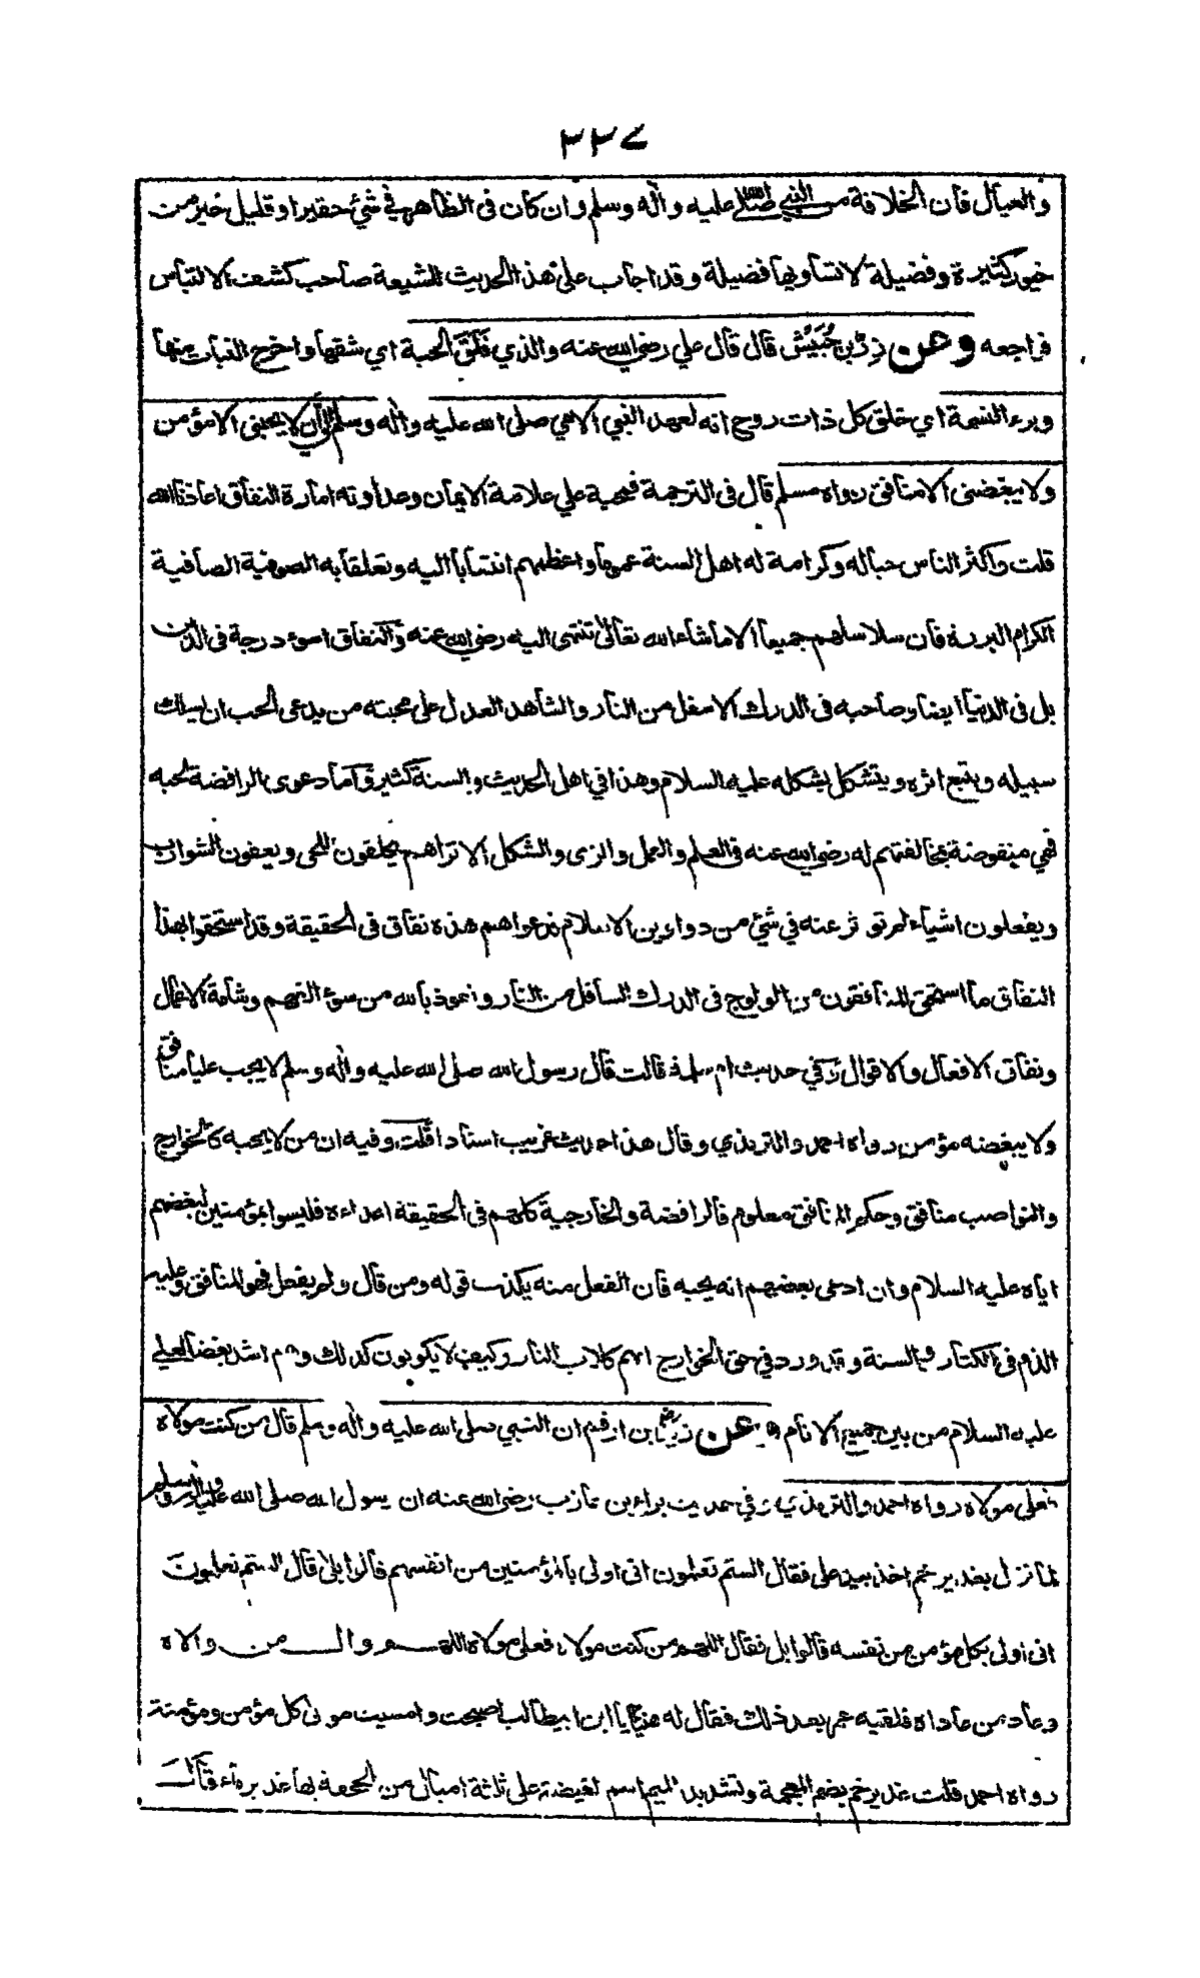 ٣٣٧
والعيال فان الخلافة من النبي صلى الله عليه واله وسلم وان كان فى الظاهر في شئ حقير او قليل خير من
خيور كثيرة وفضيلة لا تساويها فضيلة وقد اجاب على هذا الحديث الشيعة صاحب كشف الالتباس
فراجعه وعن زر بن حُبَيْش قال قال علي رضي الله عنه والذي فَلَقَ الحبة اي شقها واخرج النبات منها
وبرء النسمة اي خلق كل ذات روح انه لعهد النبي الامي صلى الله عليه واله وسلم اليّ ان لا يحبنى الا مؤمن
ولا يبغضنى الا منافق رواه مسلم قال فى الترجمة فمحبة علي علامة الايمان وعداوته امارة النفاق اعاذنا الله
قلت واكثر الناس حبا له وكرامة له اهل السنة عموما واعظمهم انتسابا اليه وتعلقا به الصوفية الصافية
الكرام البررة فان سلاسلهم جميعا الا ما شاء الله تعالى تنتهى اليه رضي الله عنه والنفاق اسوء درجة فى الدين
بل فى الدنيا ايضا وصاحبه فى الدرك الاسفل من النار والشاهد العدل على محبته من يدعى الحب ان يسلك
سبيله ويتبع اثره ويتشكل بشكله عليه السلام وهذا في اهل الحديث والسنة كثير واما دعوى الرافضة لحبه
فهي منقوضة بمخالفتهم له رضي الله عنه فى العلم والعمل والزى والشكل الا تراهم يحلقون اللحى ويعفون الشوارب
ويفعلون اشياء لم تؤثر عنه في شئ من دواوين الاسلام فدعواهم هذه نفاق فى الحقيقة وقد استحقوا بهذا
النفاق ما استحق المنافقون من الولوج فى الدرك السافل من النار ونعوذ بالله من سوء الفهم وشأمة الاعمال
ونفاق الافعال والاقوال وفي حديث ام سلمة قالت قال رسول الله صلى الله عليه واله وسلم لا يحب عليا منافق
ولا يبغضه مؤمن رواه احمد والترمذي وقال هذا حديث غريب اسنادا قلت وفيه ان من لا يحبه كالخوارج
والنواصب منافق وحكم المنافق معلوم فالرافضة والخارجية كلهم في الحقيقة اعداءه فليسوا بمؤمنين لبغضهم
اياه عليه السلام وان ادعى بعضهم انه يحبه فان الفعل منه يكذب قوله ومن قال ولم يفعل فهو المنافق وعليه
الذم فى الكتاب والسنة وقد ورد في حق الخوارج انهم كلاب النار وكيف لا يكونون كذلك وهم اشد بغضا لعلي
عليه السلام من بين جميع الانام وعن زيد بن ارقم ان النبي صلى الله عليه واله وسلم قال من كنت مولاه
فعلى مولاه رواه احمد والترمذي وفي حديث براء بن عازب رضى الله عنه ان رسول الله صلى الله عليه واله وسلم
لما نزل بغدير خم اخذ بيد على فقال الستم تعلمون انى اولى بالمؤمنين من انفسهم قالوا بلى قال الستم تعلمون
انى اولى بكل مؤمن من نفسه قالوا بلى فقال اللهم من كنت مولاه فعلى مولاه اللهم وال من والاه
وعاد من عاداه فلقيه عمر بعد ذلك فقال له هنيئا يا ابن ابيطالب اصبحت وامسيت مولى كل مؤمن ومؤمنة
رواه احمد قلت غدير خم بضم المعجمة وتشديد الميم اسم لغيضة على ثلثة اميال من الجحفة بها غدير ماء قالت